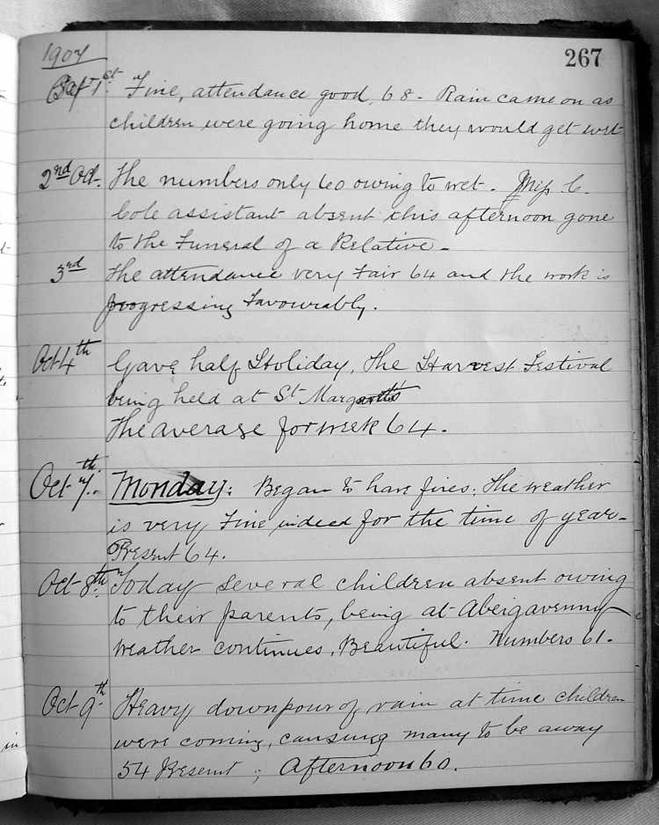 1907
267
Oct 1st. Fine, attendance good, 68. Rain came on as
children were going home they would get wet
2nd Oct. The numbers only 60 owing to wet. Miss C.
Cole assistant absent this afternoon gone
to the Funeral of a Relative.
3rd The attendance very Fair 64 and the work is
progressing Favourably.
Oct 4th Gave half Holiday, The Harvest Festival
being held at St Margaretts
The average for week 64.
Oct 7th. Monday: Began to have fires. The weather
is very Fine indeed for the time of year.
Present 64.
Oct 8th. Today several children absent owing
to their parents, being at Abergavenny
weather continues, Beautiful. Numbers 61.
Oct 9th Heavy downpour of rain at time children
were coming, causing many to be away
54 Present ; Afternoon 60.
in